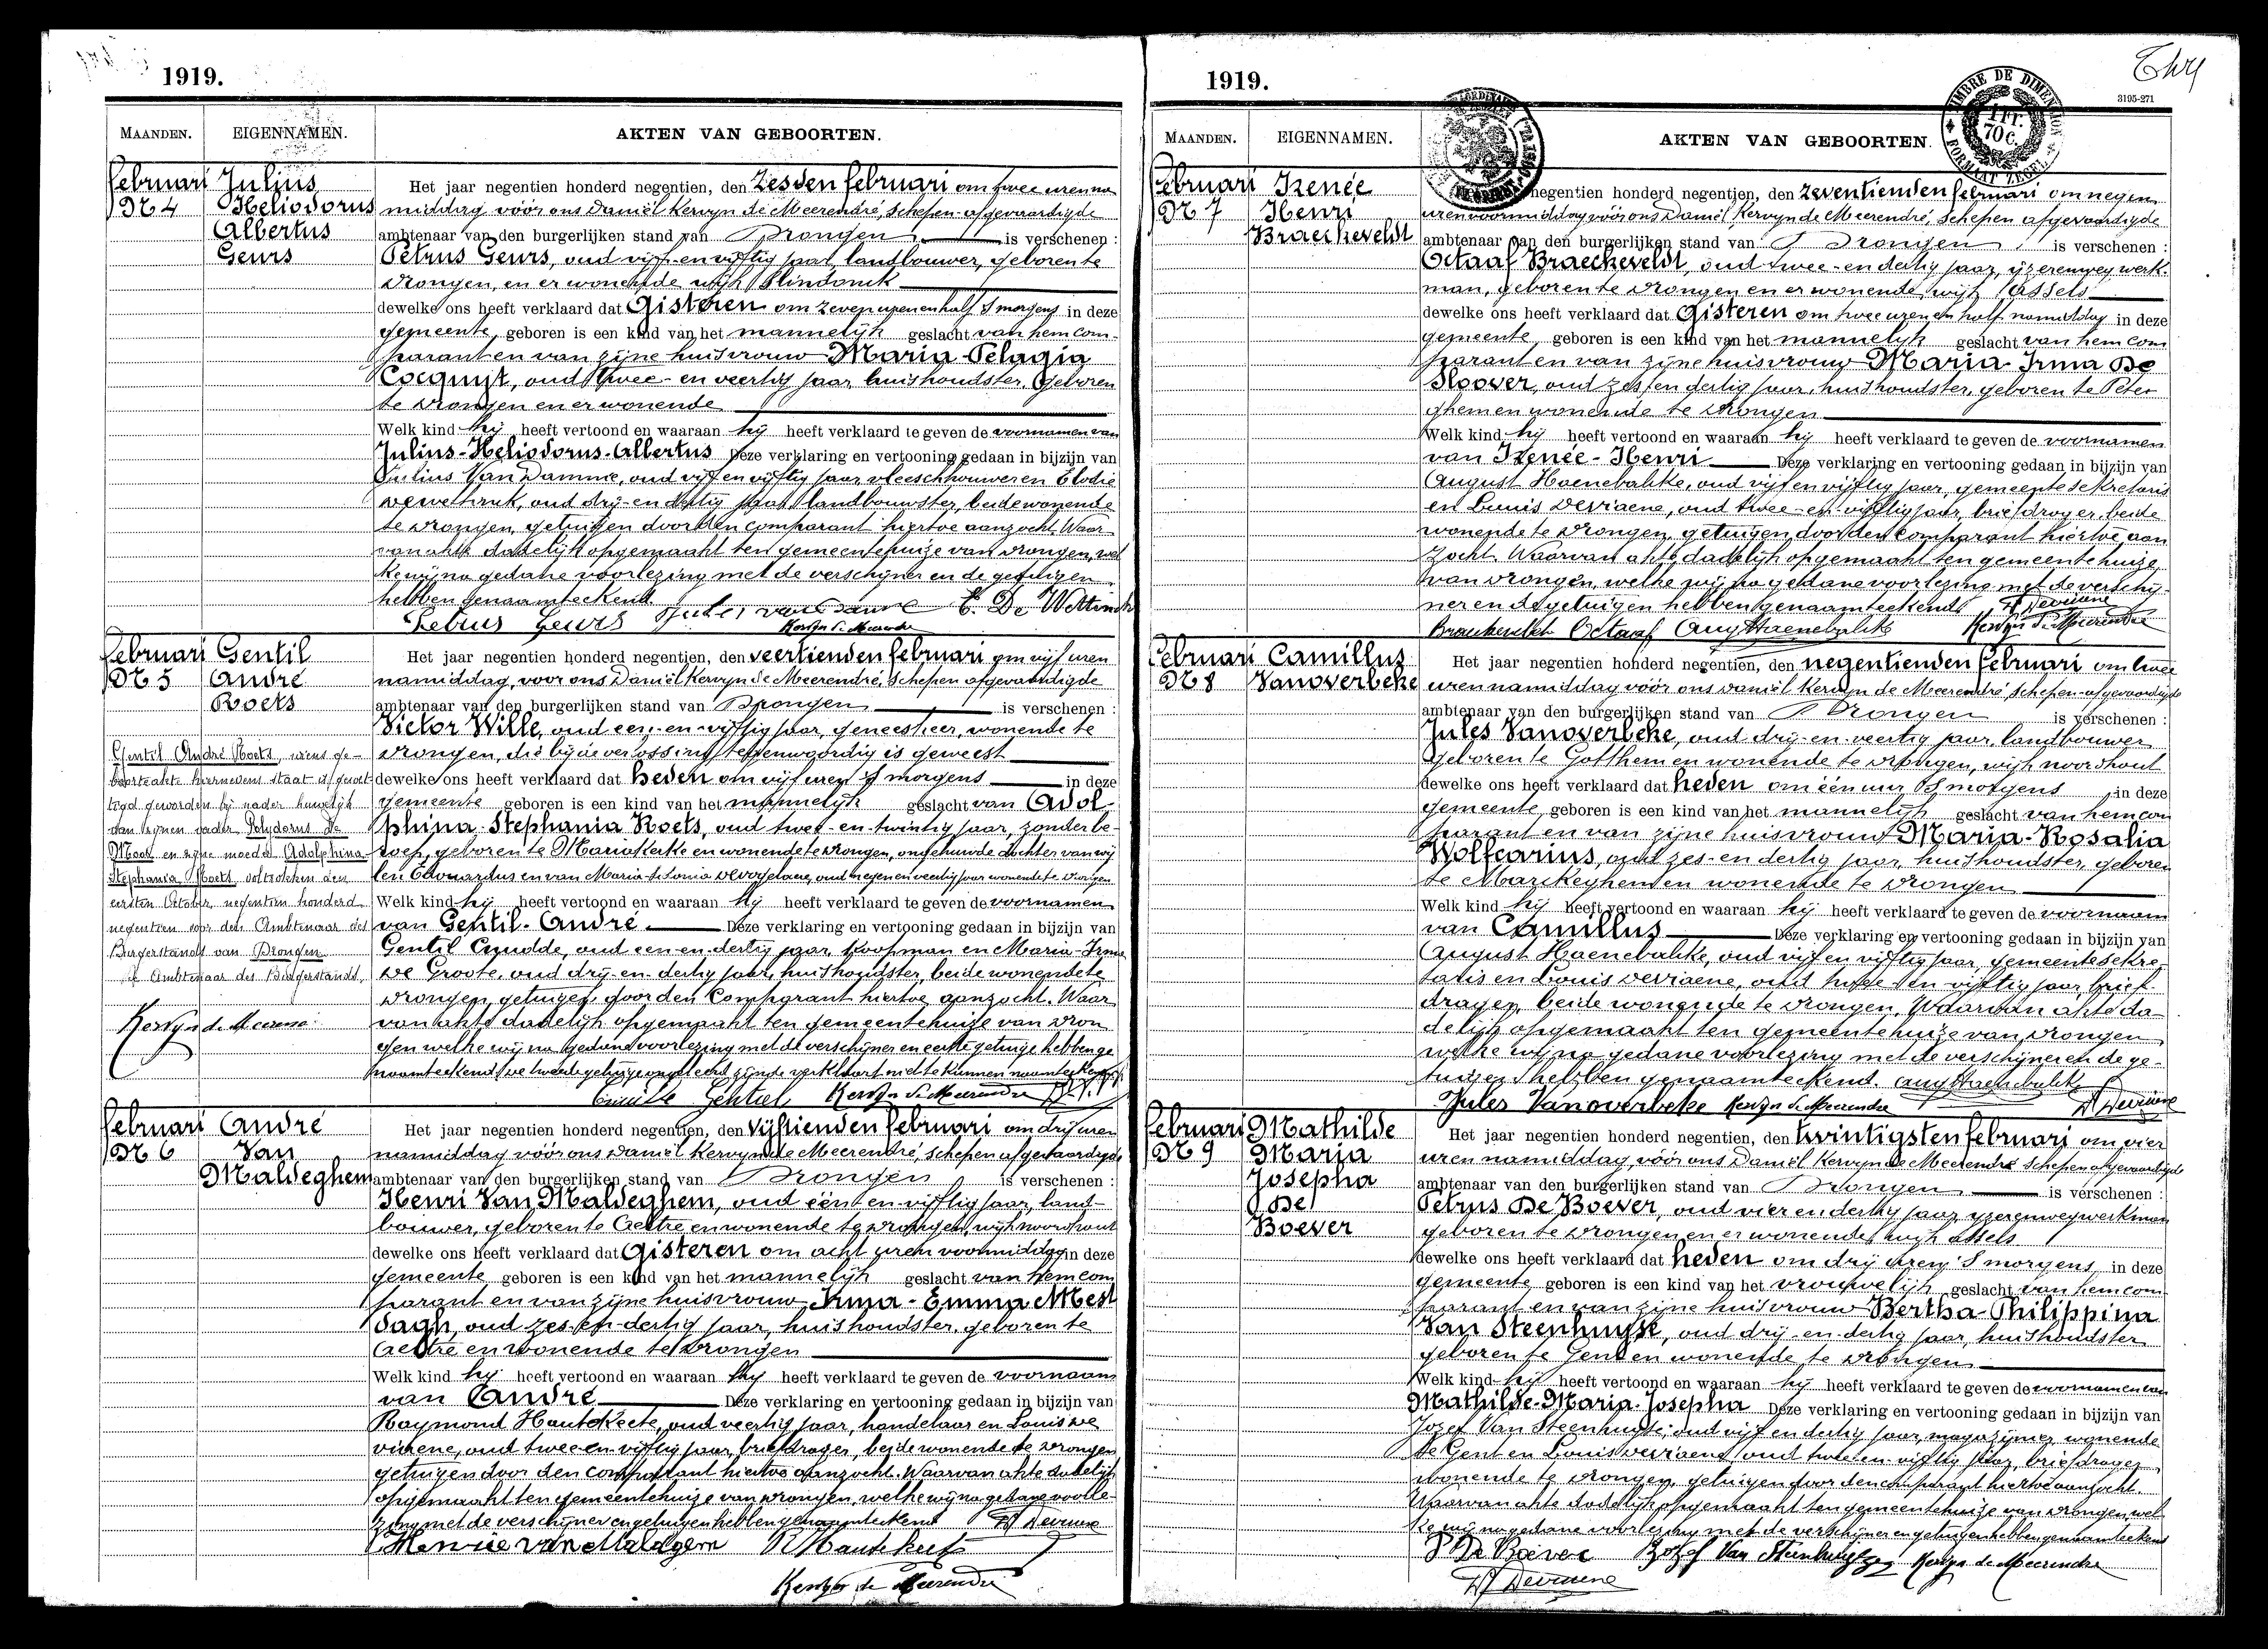 1919.
MAANDEN. EIGENNAMEN. AKTEN VAN GEBOORTEN.
Februari Julius
N 4 Heliodorus
Albertus
Geurs
Het jaar negentien honderd negentien, den zesden februari om twee uren na
middag vóór ons Daniël Kervyn de Meerendré, schepen afgevaardigde
ambtenaar van den burgerlijken stand van Drongen is verschenen :
Petrus Geurs, oud vijf-en-vijftig jaar, landbouwer, geboren te
Drongen, en er wonende wijk
dewelke ons heeft verklaard dat Gisteren om zeven uren en half 's morgens in deze
gemeente, geboren is een kind van het mannelijk geslacht van hem com-
parant en van zijne huisvrouw Maria-Pelagia
Cocquyt, oud twee-en veertig jaar, huishoudster, geboren
te Drongen en er wonende
Welk kind hij heeft vertoond en waaraan hij heeft verklaard te geven de voornamen van
Julius-Heliodorus-Albertus Deze verklaring en vertooning gedaan in bijzijn van
Julius Van Damme, oud vijf en vijftig jaar, vleeschhouwer en Elodie
oud drij-en dertig jaar landbouwster, beide wonende
te Drongen, getuigen door den comparant hiertoe aanzocht. Waar
van akte dadelijk opgemaakt ten gemeentehuize van Drongen, wel
ke wij na gedane voorlezing met de verschijner en de getuigen
hebben genaamteekend.
Petrus Geurs Jules van Damme E. De Wettinck
Kervyn de Meerendre
Februari Gentil
N 5 André
Roets
Het jaar negentien honderd negentien, den veertienden februari om vijf uren
namiddag, voor ons Daniël Kervyn de Meerendré, schepen afgevaardigde
ambtenaar van den burgerlijken stand van Drongen is verschenen :
Victor Wille, oud een-en-vijftig jaar, geneesheer, wonende te
Drongen, die bij de verlossing tegenwoordig is geweest
dewelke ons heeft verklaard dat heden om vijf uren 's morgens in deze
gemeente geboren is een kind van het mannelijk geslacht van Adol-
phina-Stephania Roets, oud twee-en-twintig jaar, zonder be-
roep, geboren te Mariakerke en wonende te Drongen, ongehuwde dochter van wij
len Eduardus en van Maria oud negen en veertig jaar wonende te Drongen
Welk kind hij heeft vertoond en waaraan hij heeft verklaard te geven de voornamen
van Gentil-André Deze verklaring en vertooning gedaan in bijzijn van
Gentil Cnudde, oud een-en-dertig jaar, koopman en Maria-Irma
De Groote, oud drij-en-dertig jaar, huishoudster, beide wonende te
Drongen, getuigen door den Comparant hiertoe aanzocht. Waar
van akte dadelijk opgemaakt ten gemeentehuize van Dron
gen welke wij na gedane voorlezing met de verschijner en eerste getuige hebben ge
naamteekend, de tweede getuige zijnde verklaart niet te kunnen naamteekenen
Gentil Kervyn de Meerendre
Gentil André Roets, wiens ge-
boorteakte hiernevens staat is gewet-
tigd geworden bij nader huwelijk
van zijnen vader Polydorus De
Moor en zijne moeder Adolphina
Stephania Roets, voltrokken den
eersten October negentien honderd
negentien voor den Ambtenaar des
Burgerstands van Drongen
de Ambtenaar des Burgerstands,
Kervyn de Meerendré
Februari André
N 6 Van
Maldeghem
Het jaar negentien honderd negentien, den vijftienden februari om drij uren
namiddag vóór ons Daniël Kervyn de Meerendré, schepen afgevaardigde
ambtenaar van den burgerlijken stand van Drongen is verschenen :
Henri Van Maldeghem, oud één en vijftig jaar, land-
bouwer, geboren te Aeltre en wonende te Drongen, wijk noordhout
dewelke ons heeft verklaard dat Gisteren om acht uren voormiddag in deze
gemeente geboren is een kind van het mannelijk geslacht van hem com
parant en van zijne huisvrouw Irma-Emma Mest
dagh, oud zes-en-dertig jaar, huishoudster, geboren te
Aeltre en wonende te Drongen
Welk kind hij heeft vertoond en waaraan hij heeft verklaard te geven de voornaam
van André Deze verklaring en vertooning gedaan in bijzijn van
Raymond Hautekeete, oud veertig jaar, handelaar en Louis De
viaene, oud twee-en-vijftig jaar, briefdrager, beide wonende te Drongen
getuigen door den comparant hiertoe aanzocht. Waarvan akte dadelijk
opgemaakt ten gemeentehuize van Drongen, welke wij na gedane voorle
zing met de verschijner en getuigen hebben genaamteekend Ls Deviaene
Henrie van Maldegem R Hautekeet
Kervyn de Meerendré
1919.
3195-271
TIMBRE DE DIMENSION
1 FR. 70 C.
FORMAAT ZEGEL
MAANDEN. EIGENNAMEN. AKTEN VAN GEBOORTEN.
Februari Irenée
N 7 Henri
Braeckeveldt
negentien honderd negentien, den zeventienden februari om negen
uren voormiddag vóór ons Daniël Kervyn de Meerendré, schepen afgevaardigde
ambtenaar van den burgerlijken stand van Drongen is verschenen :
Octaaf Braeckeveldt, oud twee-en dertig jaar, ijzerenweg werk-
man, geboren te Drongen en er wonende, wijk Assels
dewelke ons heeft verklaard dat Gisteren om twee uren en half namiddag in deze
gemeente, geboren is een kind van het mannelijk geslacht van hem com
parant en van zijne huisvrouw Maria-Irma De
Sloover, oud zes en dertig jaar, huishoudster, geboren te Peter
ghem en wonende te Drongen
Welk kind hij heeft vertoond en waaraan hij heeft verklaard te geven de voornamen
van Irenée-Henri Deze verklaring en vertooning gedaan in bijzijn van
August Haenebalcke, oud vijf en vijftig jaar, gemeentesekretaris
en Louis Deviaene, oud twee-en vijftig jaar, briefdrager, beide
wonende te Drongen, getuigen door den comparant hiertoe aan
zocht. Waarvan akte dadelijk opgemaakt ten gemeentehuize
van Drongen, welke wij na gedane voorlezing met de verschij-
ner en de getuigen hebben genaamteekend Ls Deviaene
Octaaf Aug Haenebalcke Kervyn de Meerendre
Februari Camillus
N 8 Vanoverbeke
Het jaar negentien honderd negentien, den negentienden februari om twee
uren namiddag vóór ons Daniël Kervyn de Meerendré schepen-afgevaardigde
ambtenaar van den burgerlijken stand van Drongen is verschenen :
Jules Vanoverbeke, oud drij-en-veertig jaar, landbouwer
geboren te Gotthem en wonende te Drongen, wijk noordhout
dewelke ons heeft verklaard dat heden om één uur 's morgens in deze
gemeente, geboren is een kind van het mannelijk geslacht van hem com
parant en van zijne huisvrouw Maria-Rosalia
Wolfcarius, oud zes-en dertig jaar, huishoudster, geboren
te Marckeghem en wonende te Drongen
Welk kind hij heeft vertoond en waaraan hij heeft verklaard te geven de voornaam
van Camillus Deze verklaring en vertooning gedaan in bijzijn van
August Haenebalcke, oud vijf en vijftig jaar, gemeentesekre-
taris en Louis Deviaene, oud twee en vijftig jaar, brief-
drager, beide wonende te Drongen, Waarvan akte da-
delijk opgemaakt ten gemeentehuize van Drongen
welke wij na gedane voorlezing met de verschijner en de ge-
tuigen hebben genaamteekend. Aug Haenebalcke
Jules Vanoverbeke Kervyn de Meerendre Ls Deviaene
Februari Mathilde
N 9 Maria
Josepha
De
Boever
Het jaar negentien honderd negentien, den twintigsten februari om vier
uren namiddag, vóór ons Daniël Kervyn de Meerendré schepen afgevaardigde
ambtenaar van den burgerlijken stand van Drongen is verschenen :
Petrus De Boever, oud vier en dertig jaar, ijzerenwegwerkman
geboren te Drongen en er wonende, wijk Assels
dewelke ons heeft verklaard dat heden om drij uren 's morgens, in deze
gemeente geboren is een kind van het vrouwelijk geslacht van hem com-
parant en van zijne huisvrouw Bertha-Philippina
Van Steenhuyse, oud drij-en-dertig jaar, huishoudster
geboren te Gent en wonende te Drongen
Welk kind hij heeft vertoond en waaraan hij heeft verklaard te geven de voornamen van
Mathilde-Maria-Josepha Deze verklaring en vertooning gedaan in bijzijn van
Jozef Van Steenhuyse, oud vijf en dertig jaar, magazijnier, wonende
te Gent en Louis Deviaene, oud twee en vijftig jaar, briefdrager
wonende te Drongen, getuigen door den comparant hiertoe aanzocht.
Waarvan akte dadelijk opgemaakt ten gemeentehuize van Drongen, wel-
ke wij na gedane voorlezing met de verschijner en getuigen hebben genaamteekend
P De Boever Jozef Van Steenhuyse Kervyn de Meerendre
Ls Deviaene